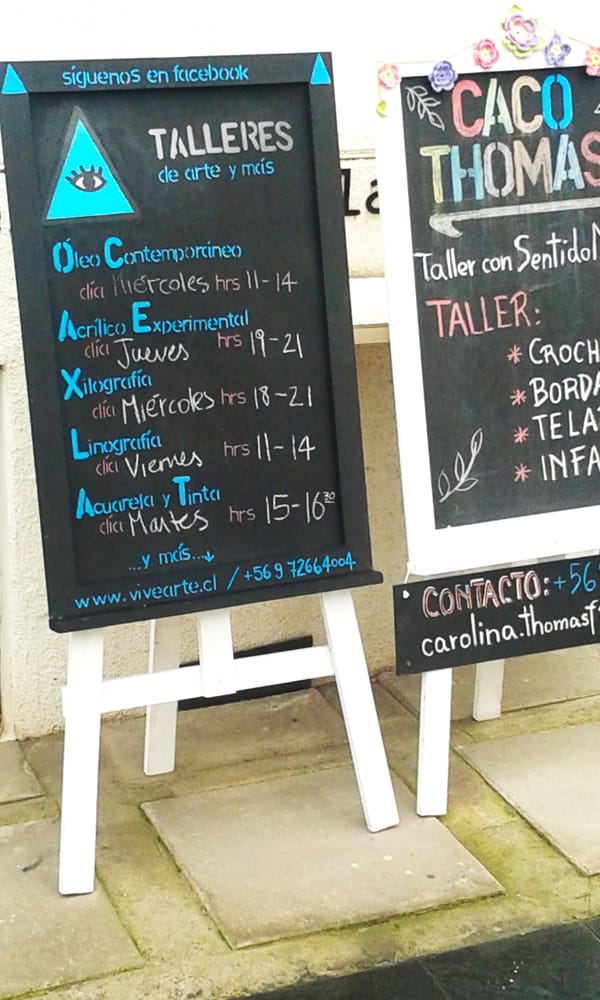 síguenos en facebook
TALLERES
de arte y más
Óleo Contemporáneo
día Miércoles hrs 11-14
Acrílico Experimental
día Jueves hrs 19-21
Xilografía
día Miércoles hrs 18-21
Linografía
día Viernes hrs 11-14
Acuarela y Tinta
día Martes hrs 15-16³⁰
...y más...↓
www.vivearte.cl / +56 9 72664004
la
CACO
THOMAS
Taller con Sentido
TALLER:
* CROCH
* BORDA
* TELA
* INFA
CONTACTO: +56
carolina.thomasf